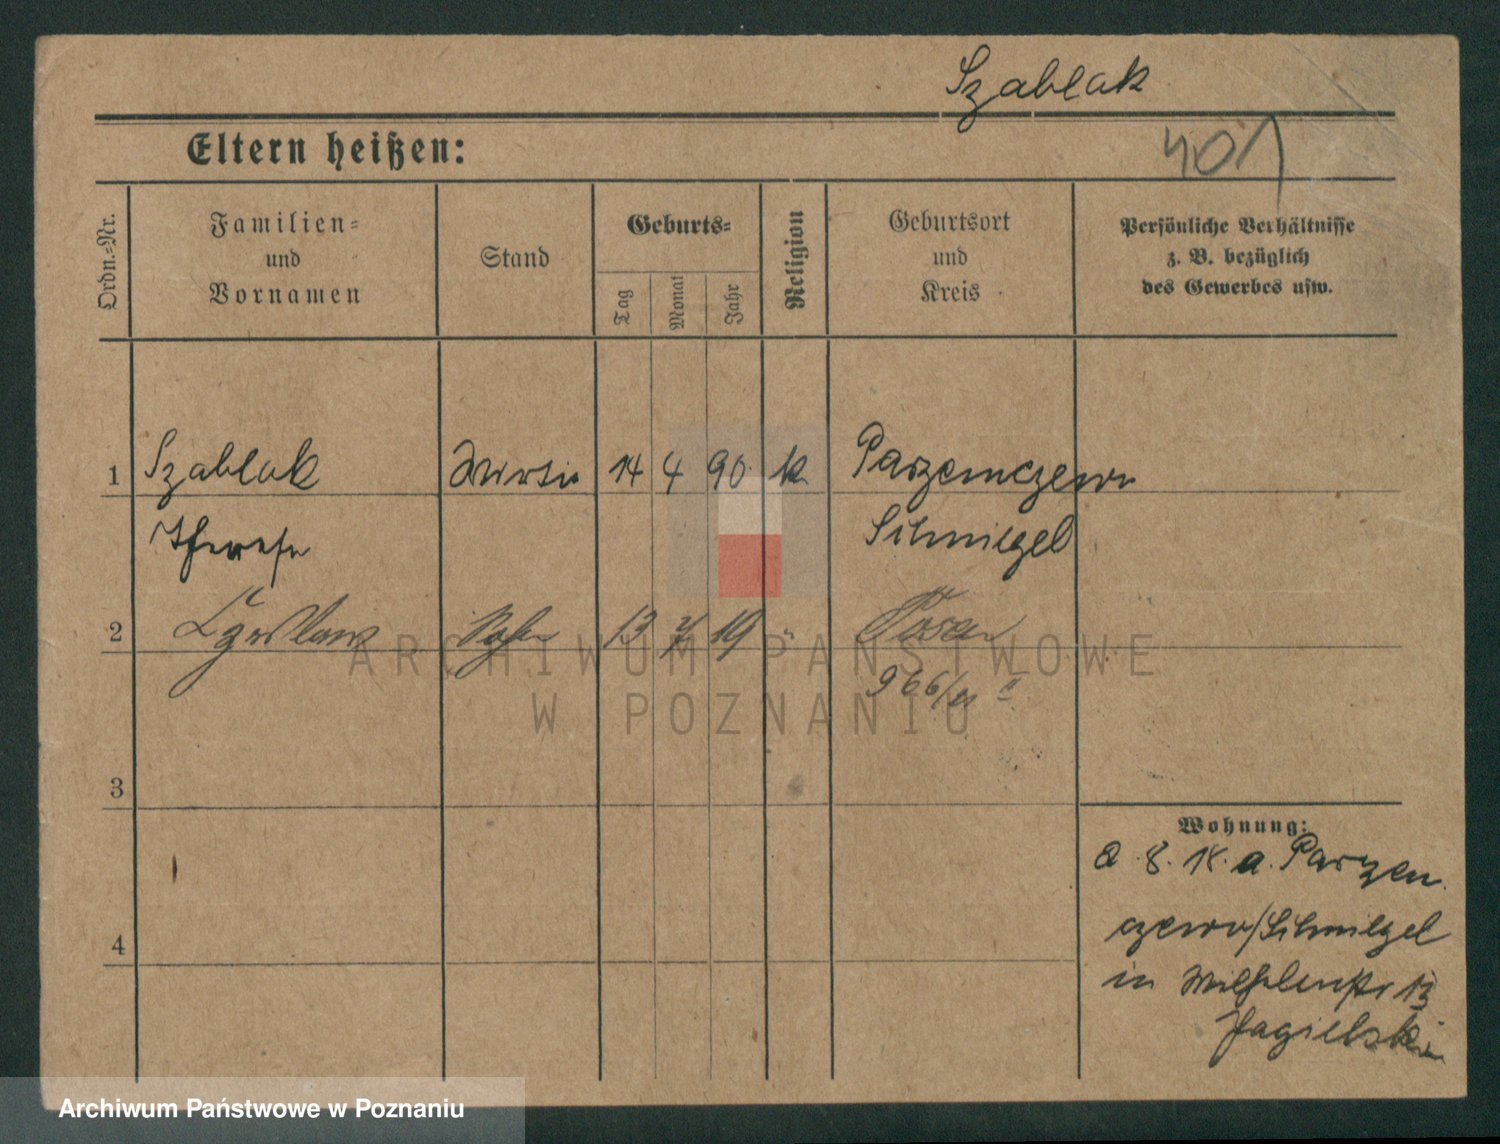 Szablak
401
Eltern heißen:
Ordn.-Nr.
Familien-
und
Vornamen
Stand
Geburts-
Tag
Monat
Jahr
Religion
Geburtsort
und
Kreis
Persönliche Verhältnisse
z. B. bezüglich
des Gewerbes usw.
1 Szablak 14 4 90 k Parzenczewo
Therese Schmiegel
2 Czeslaus Sohn 13 7 19 " Posen
966/
3
Wohnung:
a. 8. 18. a. Parzen
czewo/Schmiegel
in Wilhelmstr 13
Jagielski
4
ARCHIWUM PAŃSTWOWE
W POZNANIU
Archiwum Państwowe w Poznaniu